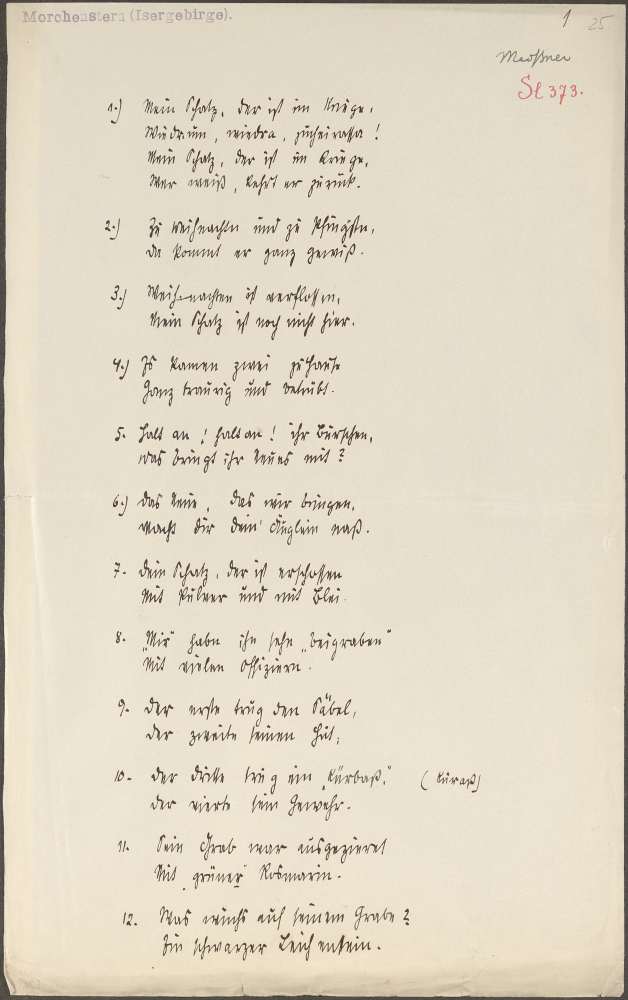 Morchenstern (Isergebirge).
1 25
St 373.
1.) Mein Schatz, der ist im Kriege,
Wiedrum, wiedra, juheirassa!
Mein Schatz, der ist im Kriege,
Wer weiß, kehrt er zurück.
2.) Zu Weihnachtn und zu Pfingstn,
da kommt er ganz gewiß.
3.) Weihnachten ist verflossen,
Mein Schatz ist noch nicht hier.
4.) Es kamen zwei zu Hause
Ganz traurig und betrübt.
5. Halt an! halt an! ihr Burschen,
was bringt ihr Neues mit?
6.) das Neue, das wir bringen,
macht dir dein' Äuglein naß.
7. dein Schatz, der ist erschossen
Mit Pulver und mit Blei.
8. "Mir" habn ihn sehn "beigraben"
Mit vielen Offiziern.
9. der erste trug den Säbel,
der zweite seinen Hut,
10. der dritte trug ein "Kürbaß," (Küraß)
der vierte sein Gewehr.
11. Sein Grab war ausgezieret
Mit grüner Rosmarin.
12. Was wuchs auf seinem Grabe?
Ein schwarzer Leichenstein.